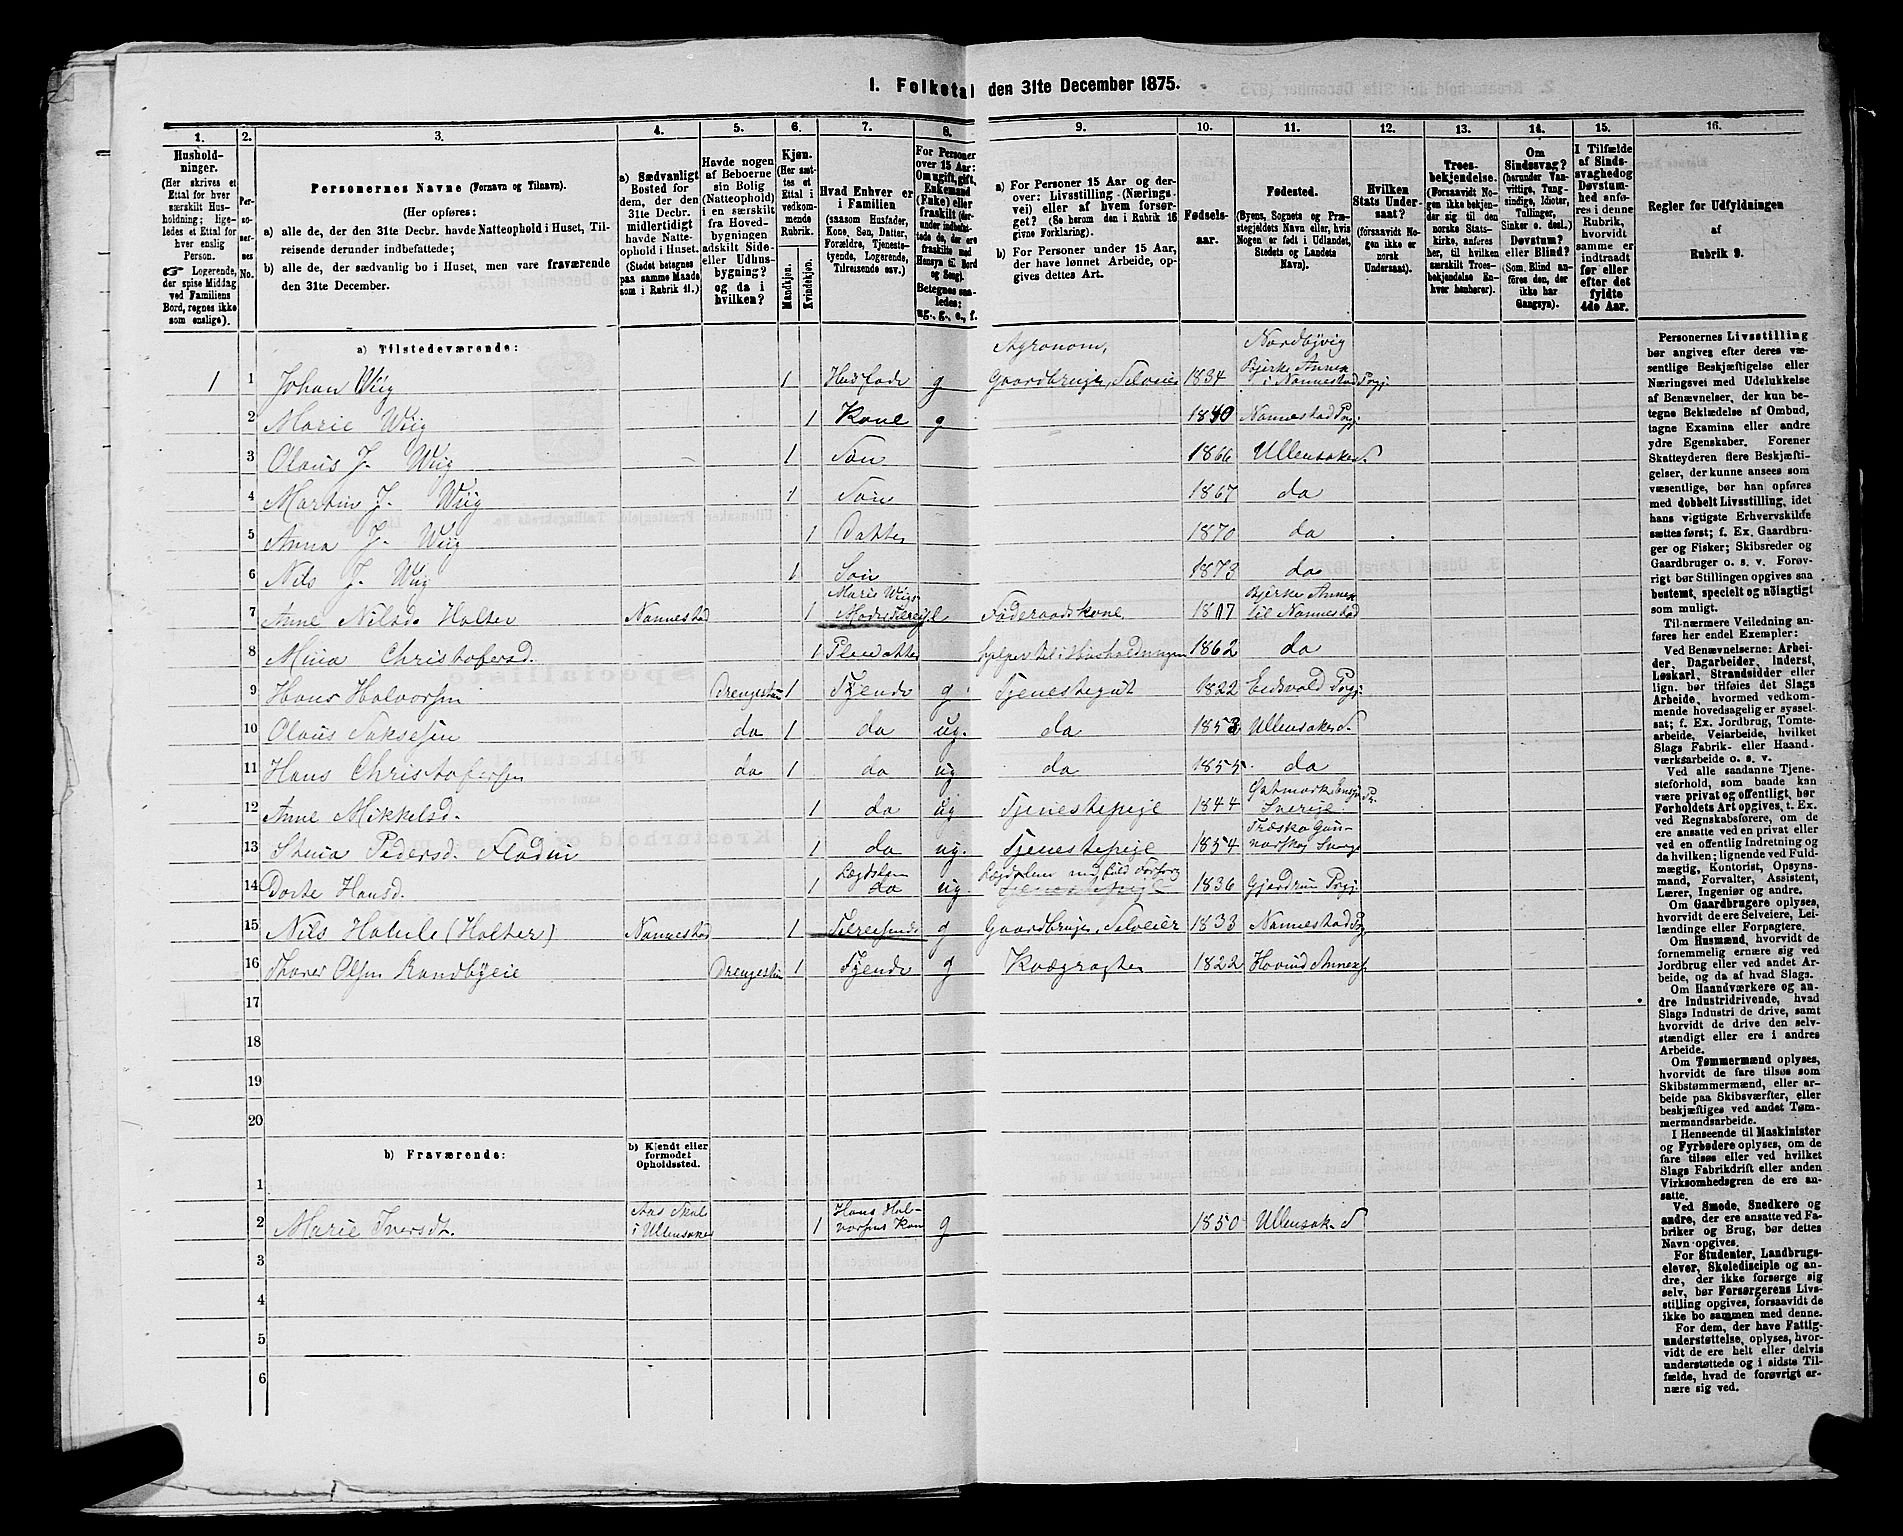 1. Folketal den 31te December 1875.
1. 2. 3. 4. 5. 6. 7. 8. 9. 10. 11. 12. 13. 14. 15. 16.
Hushold-
ninger.
(Her skrives et
Ettal for hver
særskilt Hus-
holdning; lige-
ledes et Ettal for
hver enslig
Person.
☛ Logerende,
der spise Middag
ved Familiens
Bord, regnes ikke
som enslige).
Per-
so-
ner-
nes
No.
Personernes Navne (Fornavn og Tilnavn).
(Her opføres:
a) alle de, der den 31te Decbr. havde Natteophold i Huset, Til-
reisende derunder indbefattede;
b) alle de, der sædvanlig bo i Huset, men vare fraværende
den 31te December.
a) Sædvanligt
Bosted for
dem, der den
31te Decbr.
midlertidigt
havde Natte-
ophold i Huset.
(Stedet betegnes
paa samme Maade
som i Rubrik 11.)
Havde nogen
af Beboerne
sin Bolig
(Natteophold)
i en særskilt
fra Hoved-
bygningen
adskilt Side-
eller Udhus-
bygning?
og da i
hvilken?
Kjøn.
(Her sæt-
tes et
Ettal i
vedkom-
mende
Rubrik.
Mandkjøn.
Kvindekjøn.
Hvad Enhver er
i Familien
(saasom Husfader,
Kone, Søn, Datter,
Forældre, Tjeneste-
tyende, Logerende,
Tilreisende osv.)
For Personer
over 15 Aar:
Om ugift, gift,
Enkemand
(Enke) eller
fraskilt
Betegnes saa-
ledes:
ug., g., e., f.
a) For Personer 15 Aar og der-
over: Livsstilling (Nærings-
vei) eller af hvem forsør-
get? (Se herom den i Rubrik 16
givne Forklaring).
b) For Personer under 15 Aar,
der have lønnet Arbeide, op-
gives dettes Art.
Fødsels-
aar.
Fødested.
(Byens, Sognets og Præ-
stegjeldets Navn eller, hvis
Nogen er født i Udlandet,
Stedets og Landets
Navn).
Hvilken
Stats Under-
saat?
(forsaavidt No-
gen ikke er
norsk
Undersaat).
Troes-
bekjendelse.
(Forsaavidt No-
gen ikke bekjen-
der sig til den
norske Stats-
kirke, anføres
her, til hvilken
særskilt Troes-
bekjendelse En-
hver henhører).
Om
Sindssvag?
(herunder Van-
vittige, Tung-
sindige, Idioter,
Tullinger,
Sinker o. desl.)
Døvstum?
eller Blind?
(Som Blind an-
føres den, der
ikke har
Gangsyn).
I Tilfælde
af Sinds-
svaghed og
Døvstum-
hed anfø-
res i denne
Rubrik,
hvorvidt
samme er
indtraadt
før eller
efter det
fyldte
4de Aar.
Regler for Udfyldningen
af
Rubrik 9.
a) Tilstedeværende:
Agronom, Nordbyvig
1 1 Johan Wiig 1 Husfade g Gaardbruger, Selveier 1834 Bjerke Annex
i Nannestad Prgj.
2 Marie Wiig 1 Kone g 1840 Nannestad Prgj.
3 Olaus J. Wiig 1 Søn 1866 Ullensaker S.
4 Martin J. Wiig 1 Søn 1867 do
5 Anna J. Wiig 1 Datter 1870 do
6 Nils J. Wiig 1 Søn 1873 do
7 Anne Nilsd. Holter Nannestad 1 Marie Wiigs
Moder Føderaadskone 1817 Bjerke Annex
til Nannestad
8 Mina Christofersd. 1 Pleiedatter hjelper til i Husholdningen 1862 do
9 Hans Halvorsen Drengestue 1 Tjende g Tjenestegut 1822 Eidsvold Prgj.
10 Olaus Saksesen do 1 do ug. do 1853 Ullensaker S.
11 Hans Christofersen do 1 do ug do 1855 do
12 Anne Mikkelsd. 1 do ug Tjenestepige 1844 Sverige
13 Stina Pedersd. Flodin 1 do ug. Tjenestepige 1854
14 Dorte Hansd. 1 Lægdslem
do ug. Lægdslem med fuld Forsørg
Tjenestepige 1836 Gjerdrum Prgj.
15 Nils Holter) Nannestad 1 Tilreisende g Gaardbruger, Selveier 1833 Nannestad Prgj
16 Thorer Olsen Randbyeie Drengestue 1 Tjende g Kvægrøgter 1822 Hovind Annex
17
18
19
20
b) Fraværende:
b) Kjendt eller
formodet
Opholdssted.
1
2 Marie Iversdt. Aas Skole
i Ullensaker 1 Hans Hal-
vorsens Kone g 1850 Ullensak. S
3
4
5
6
Personernes Livsstilling
bør angives efter deres væ-
sentlige Beskjæftigelse eller
Næringsvei med Udelukkelse
af Benævnelser, der kun be-
tegne Beklædelse af Ombud,
tagne Examina eller andre
ydre Egenskaber. Forener
Skatteyderen flere Beskjæfti-
gelser, der kunne ansees som
væsentlige, bør han opføres
med dobbelt Livsstilling, idet
hans vigtigste Erhvervskilde
sættes først; f. Ex. Gaardbru-
ger og Fisker; Skibsreder og
Gaardbruger o. s. v. Forøv-
rigt bør Stillingen opgives saa
bestemt, specielt og nøiagtigt
som muligt.
Til nærmere Veiledning an-
føres her endel Exempler:
Ved Benævnelserne: Arbei-
der, Dagarbeider, Inderst,
Løskarl, Strandsidder eller
lign. bør tilføies det Slags
Arbeide, hvormed vedkom-
mende hovedsagelig er syssel-
sat; f. Ex. Jordbrug, Tomte-
arbeide, Veiarbeide, hvilket
Slags Fabrik- eller Haand-
værksarbeide o. s. v.
Ved alle saadanne Tjene-
steforhold, som baade kan
være privat og offentligt, bør
Forholdets Art opgives, t. Ex.
ved Regnskabsførere, om de
ere ansatte ved en privat eller
ved en offentlig Indretning og
da hvilken; lignende ved Fuld-
mægtig, Kontorist, Opsyns-
mand, Forvalter, Assistent,
Lærer, Ingeniør og andre.
Om Gaardbrugere oplyses,
hvorvidt de ere Selveiere, Lei-
lændinge eller Forpagtere.
Om Husmænd, hvorvidt de
fornemmelig ernære sig ved
Jordbrug eller ved andet Ar-
beide, og da af hvad Slags.
Om Haandværkere og an-
dre Industridrivende, hvad
Slags Industri de drive, samt
hvorvidt de drive den selv-
stændigt eller ere i andres
Arbeide.
Om Tømmermænd oplyses,
hvorvidt de fare tilsøs som
Skibstømmermænd, eller ar-
beide paa Skibsværfter, eller
beskjæftiges ved andet Tøm-
mermandsarbeide.
I Henseende til Maskinister
og Fyrbødere oplyses, om de
fare tilsøs eller ved hvilket
Slags Fabrikdrift eller anden
Virksomhedsgren de ere an-
satte.
Ved Smede, Snedkere og
andre, der ere ansatte ved Fa-
briker og Brug, bør dettes
Navn opgives.
For Studenter, Landbrugs-
elever, Skoledisciple og an-
dre, der ikke forsørge sig
selv, bør Forsørgerens Livs-
stilling opgives, forsaavidt de
ikke bo sammen med denne.
For dem, der have Fattig-
understøttelse, oplyses, hvor-
vidt de ere helt eller delvis
understøttede og i sidste Til-
fælde, hvad de forøvrigt er-
nære sig ved.